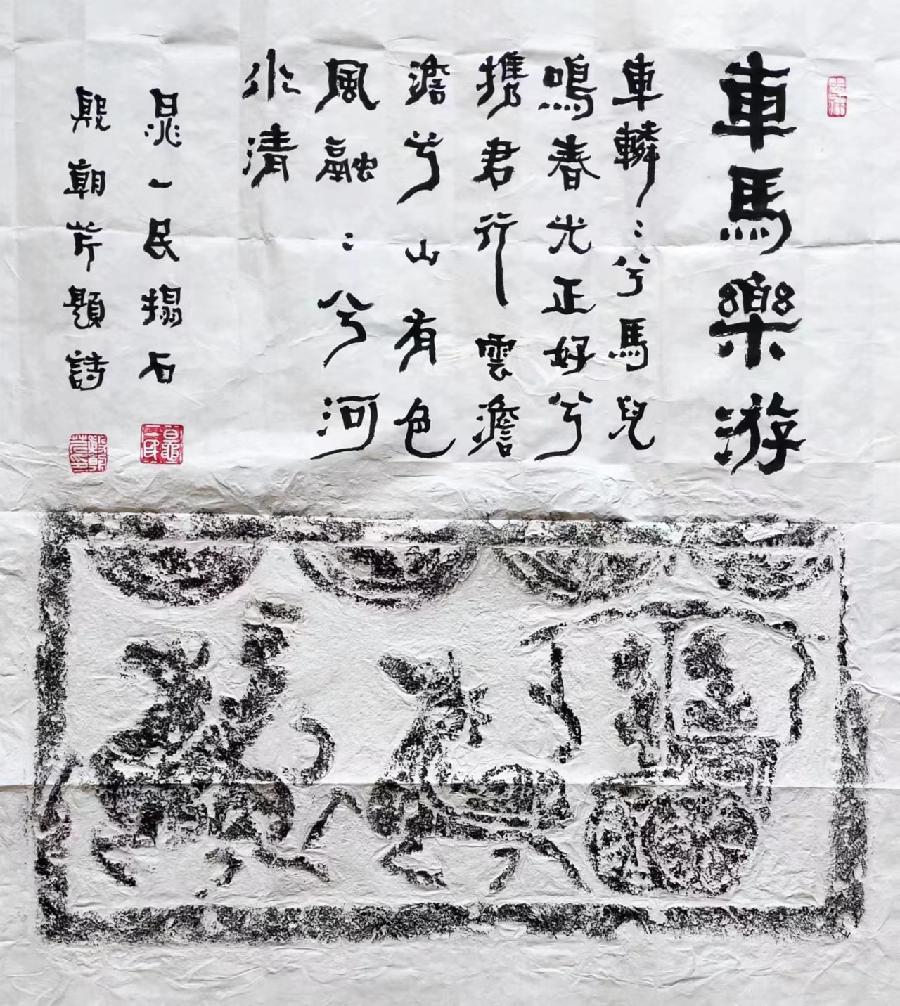 車馬樂游
車轔〻兮馬兒
鳴春光正好兮
攜君行雲澹
澹兮山有色
風融〻兮河
水清
晁一民搨石
殷朝芹題詩